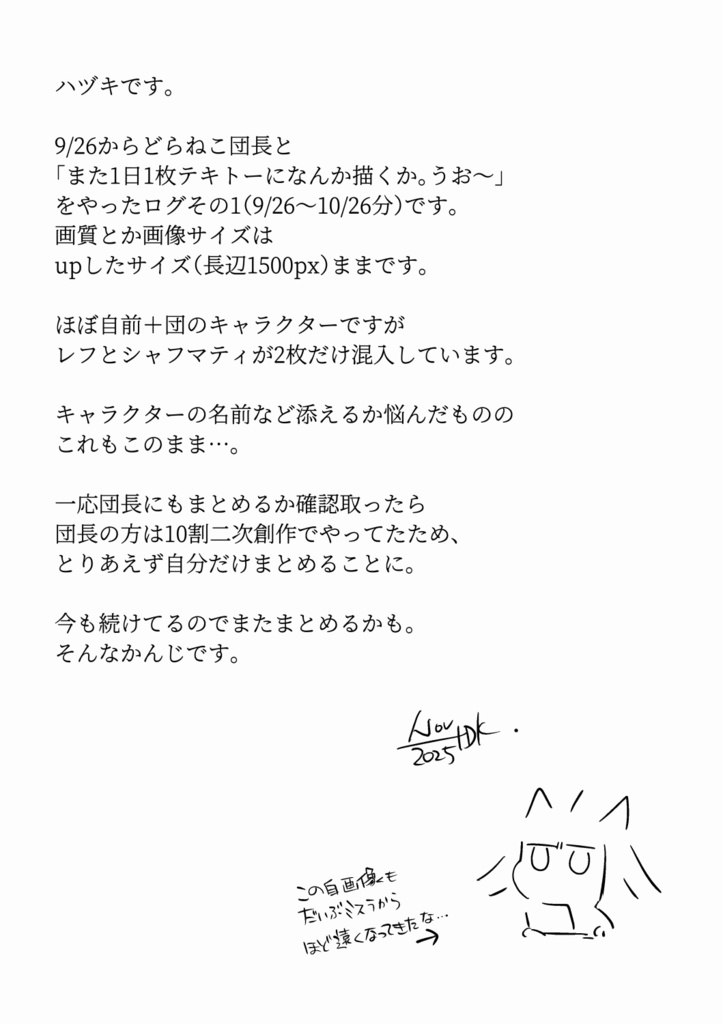 ハヅキです。
9/26からどらねこ団長と
「また1日1枚テキトーになんか描くか。うお〜」
をやったログその1（9/26〜10/26分）です。
画質とか画像サイズは
upしたサイズ（長辺1500px）ままです。
ほぼ自前＋団のキャラクターですが
レフとシャフマティが2枚だけ混入しています。
キャラクターの名前など添えるか悩んだものの
これもこのまま…。
一応団長にもまとめるか確認取ったら
団長の方は10割二次創作でやってたため、
とりあえず自分だけまとめることに。
今も続けてるのでまたまとめるかも。
そんなかんじです。
Nov
2025 HDK.
この自画像くも
だいぶミスラから
ほど遠くなってきたな…
→